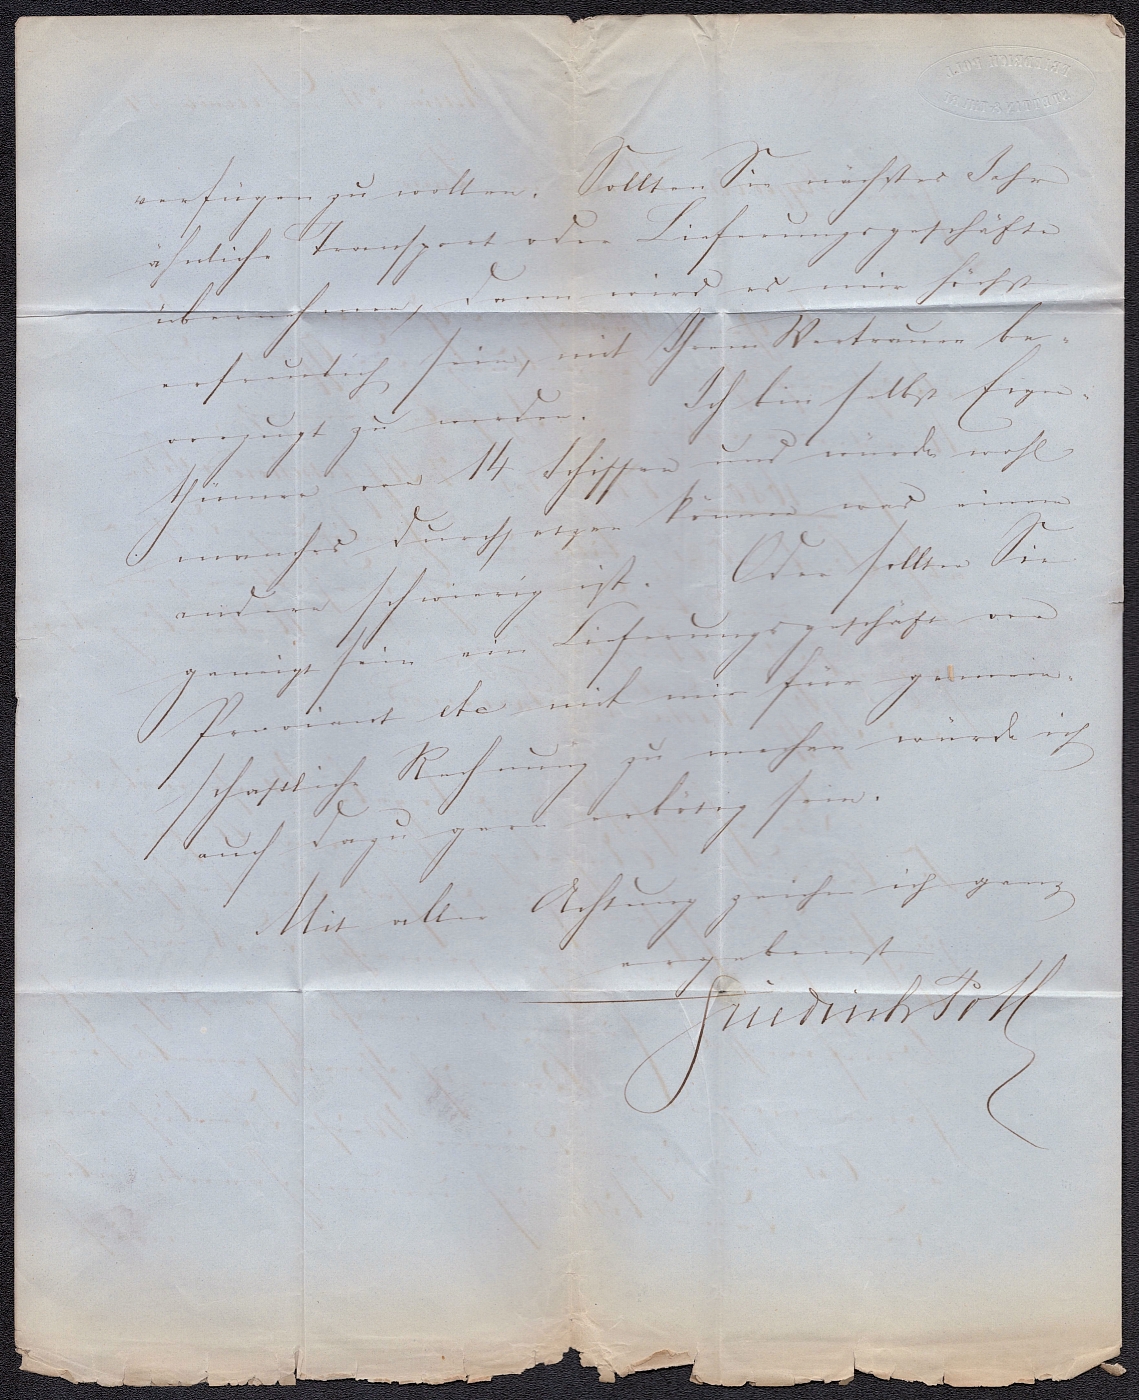 verfügen zu wollen. Sollten Sie nächstes Jahr
ähnliche Transport oder Lieferungsgeschäfte
übernehmen, dann wird es mir höchst
erfreulich sein, mit Ihrem Vertrauen be-
vorzugt zu werden. Ich bin selbst Eigen-
thümer von 14 Schiffen und würde wohl
manches durchsetzen können was einem
andern schwierig ist. Oder sollten Sie
geneigt sein ein Lieferungsgeschäft von
Proviant etc mit mir für gemein-
schaftliche Rechnung zu machen würde ich
auch dazu gern erbötig sein.
Mit aller Achtung zeichne ich ganz
ergebenst
Friedrich Poll